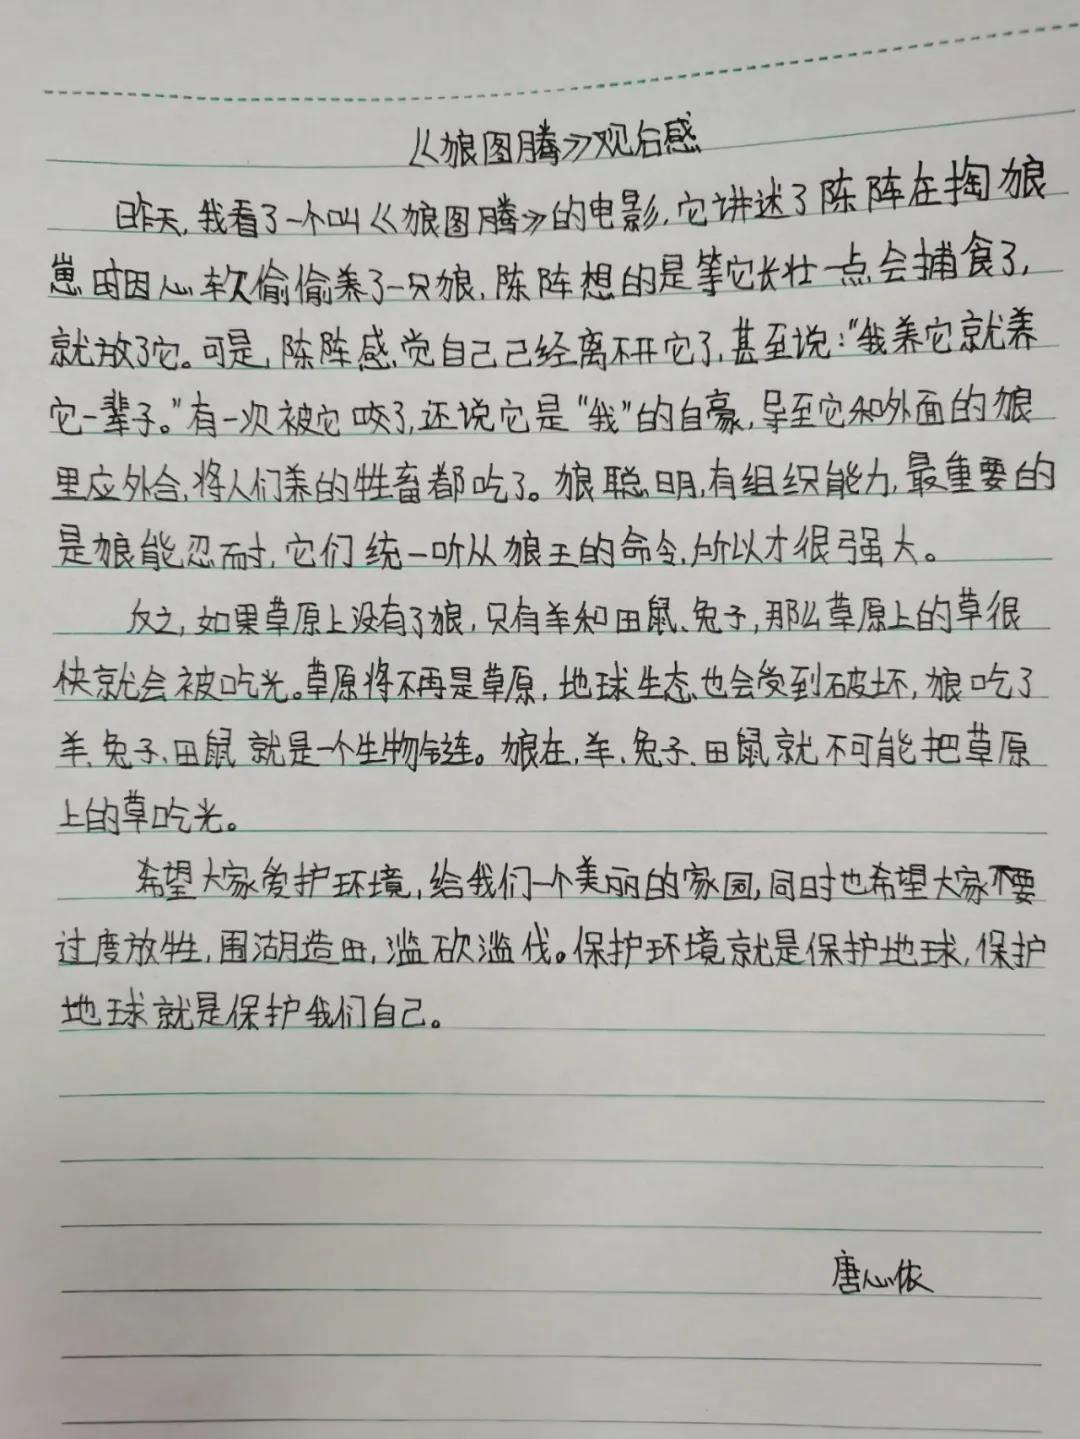 《狼图腾》观后感
昨天,我看了一个叫《狼图腾》的电影,它讲述了陈阵在掏狼
崽时因心软偷偷养了一只狼,陈阵想的是等它长壮一点会捕食了,
就放了它。可是,陈阵感觉自己已经离不开它了,甚至说:“我养它就养
它一辈子。”有一次被它咬了,还说它是“我”的自豪,导至它和外面的狼
里应外合,将人们养的牲畜都吃了。狼聪明,有组织能力,最重要的
是狼能忍耐,它们统一听从狼王的命令,所以才很强大。
反之,如果草原上没有了狼,只有羊和田鼠、兔子,那么草原上的草很
快就会被吃光。草原将不再是草原,地球生态也会受到破坏,狼吃了
羊、兔子、田鼠就是一个生物链。狼在,羊、兔子、田鼠就不可能把草原
上的草吃光。
希望大家爱护环境,给我们一个美丽的家园,同时也希望大家不要
过度放牲,围湖造田,滥砍滥伐。保护环境就是保护地球,保护
地球就是保护我们自己。
唐心依